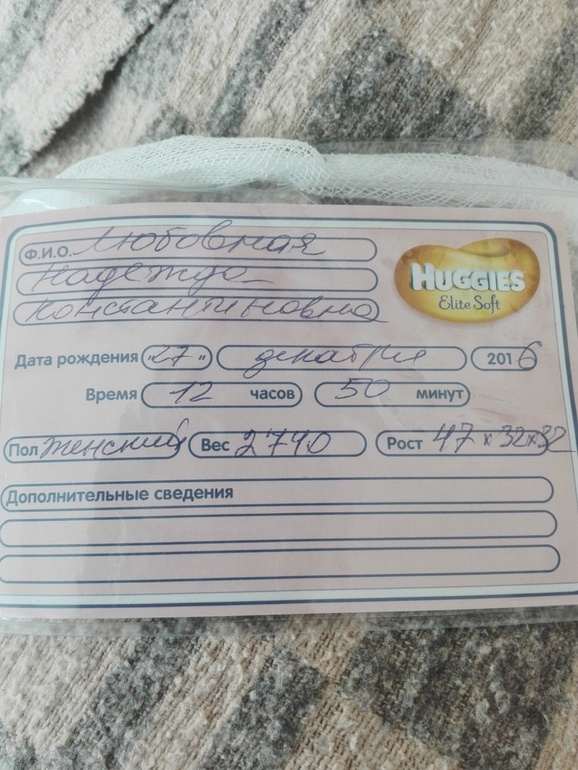 Ф.И.О. Любовная
Надежда
Константиновна
HUGGIES
Elite Soft
Дата рождения «27» декабря 2016
Время 12 часов 50 минут
Пол Женский Вес 2740 Рост 47 x 32 x 32
Дополнительные сведения